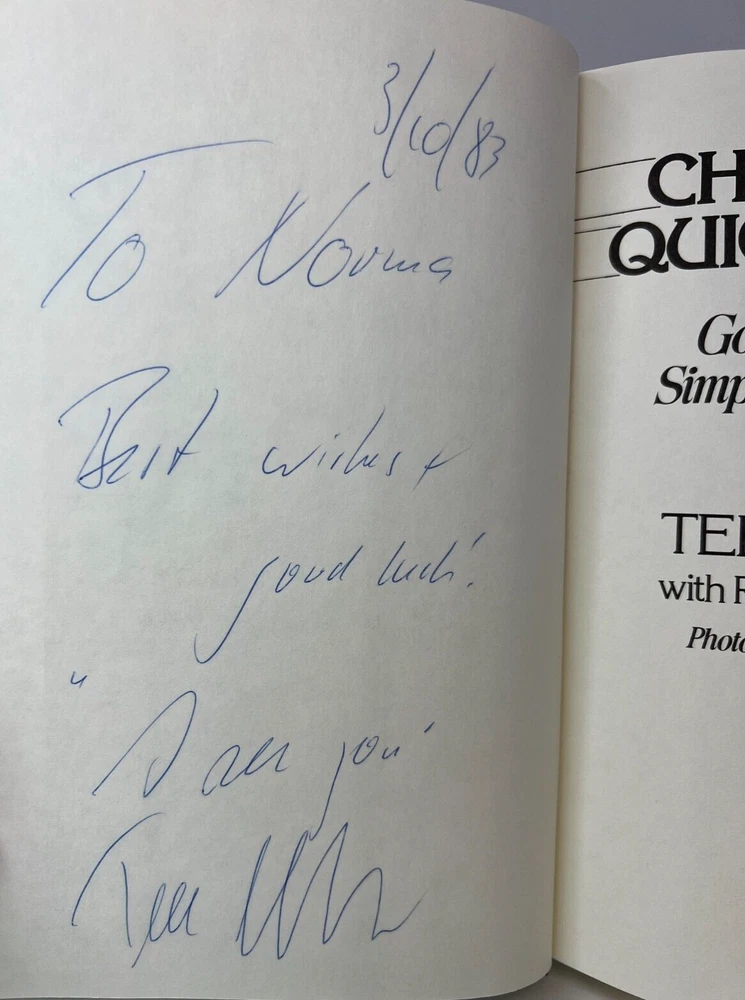 3/10/83
To Norma
Best wishes +
good luck!
" I see you"
CH
QUIC
Go
Simp
TE
with R
Photo